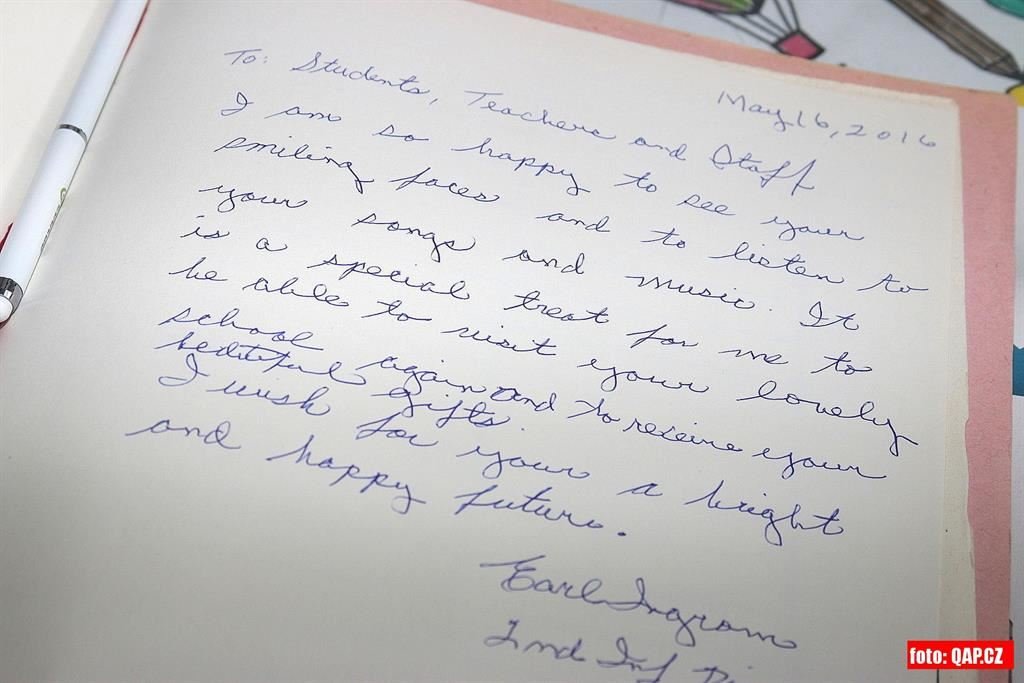 May 16, 2016
To: Students, Teachers and Staff
I am so happy to see your
smiling faces and to listen to
your songs and music. It
is a special treat for me to
be able to visit your lovely
school again and to receive your
beautiful gifts.
I wish for your a bright
and happy future.
Earl Ingram
2nd Inf Di
foto: QAP.CZ